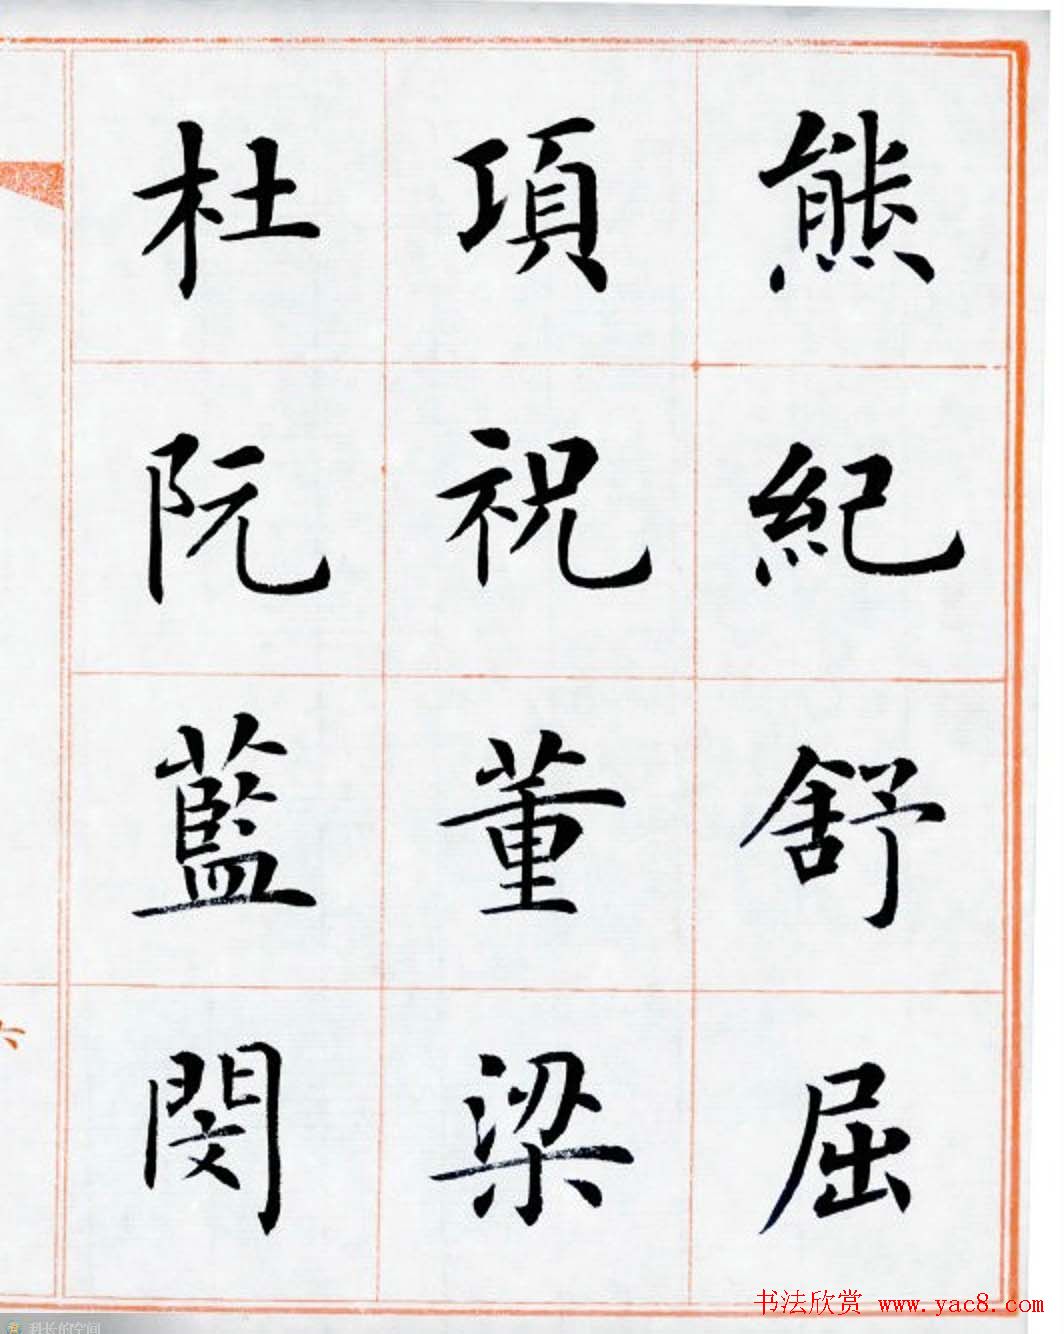 熊紀舒屈
項祝董梁
杜阮藍閔
六
书法欣赏 www.yac8.com
科长的空间